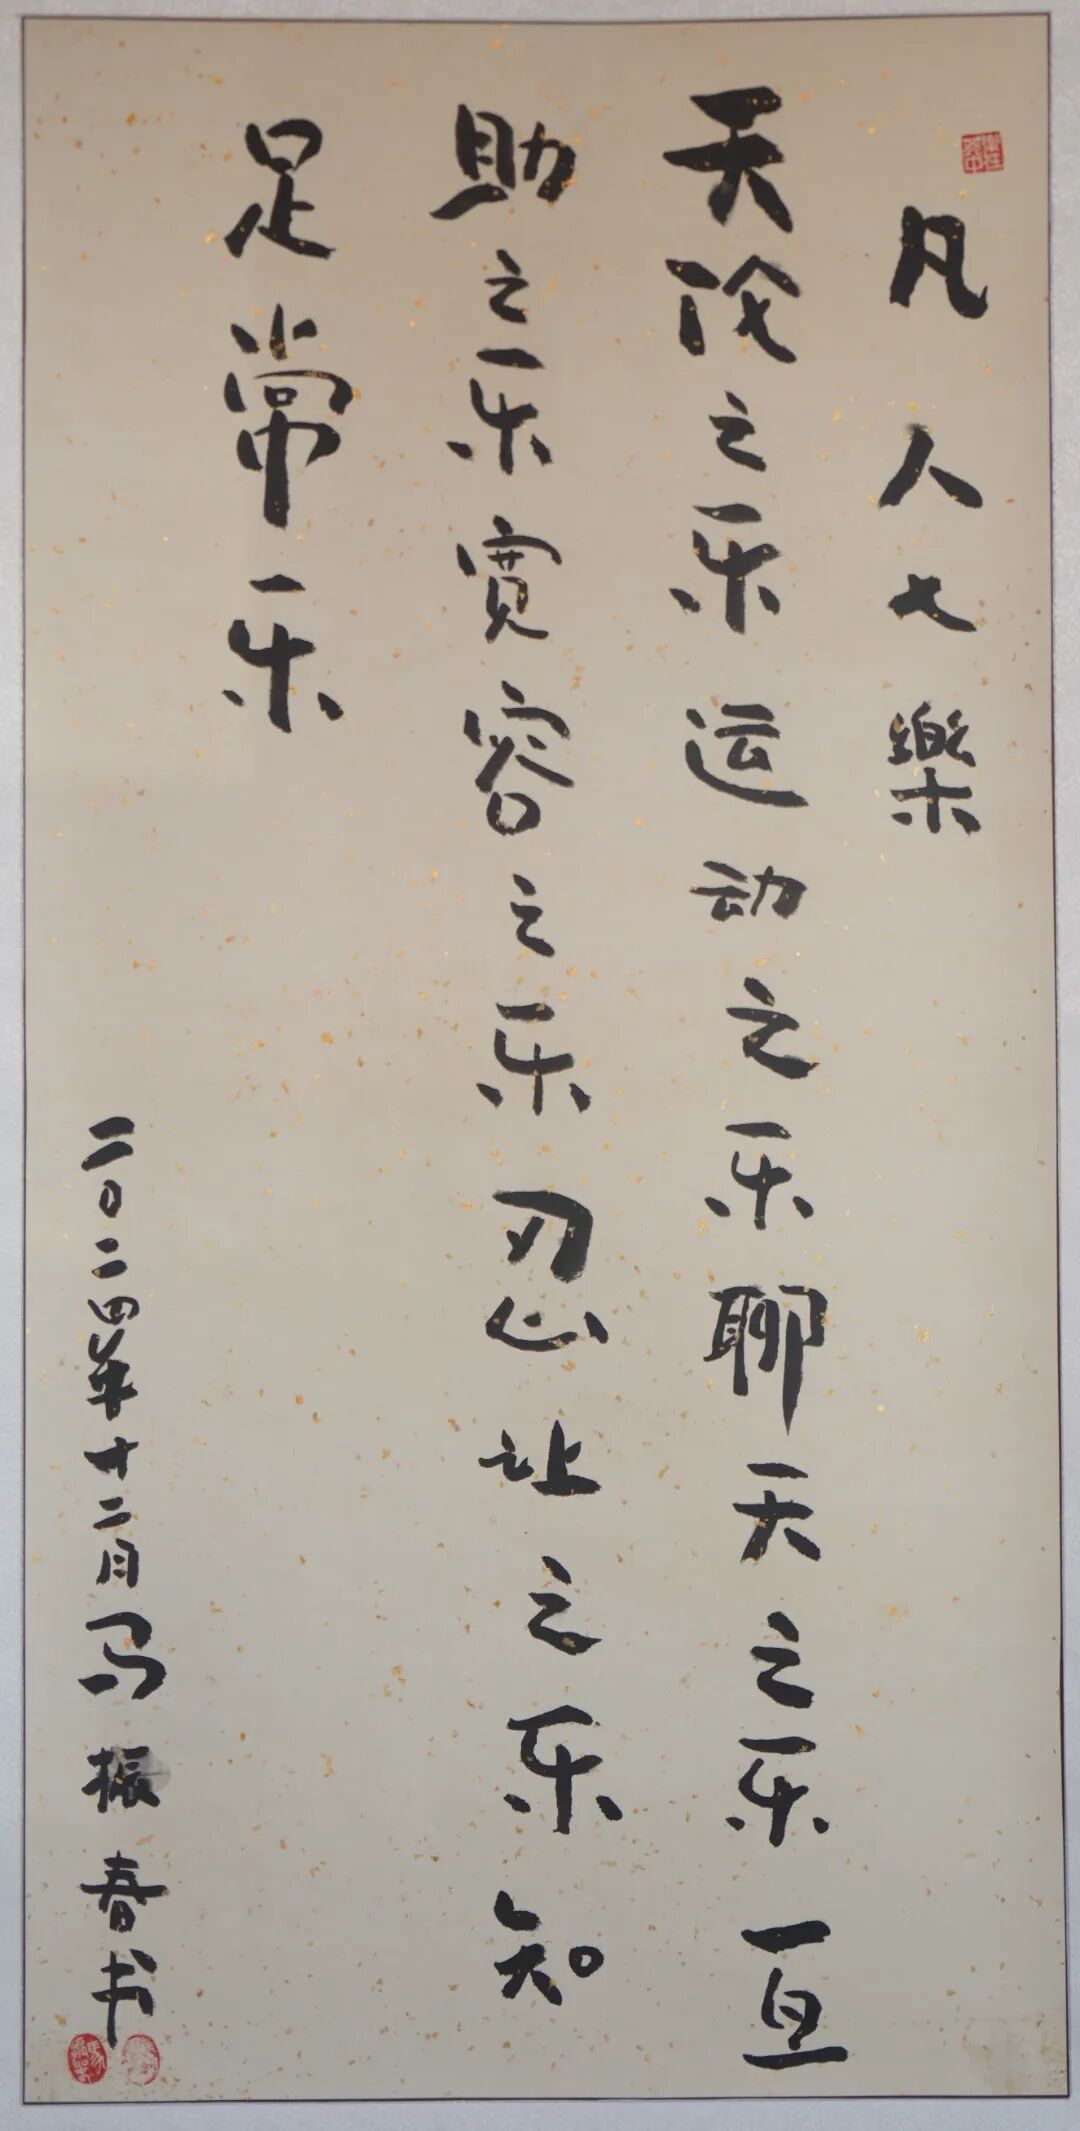 凡人七樂
天伦之乐运动之乐聊天之乐互
助之乐宽容之乐忍让之乐知
足常乐
二〇二四年十二月马振春书